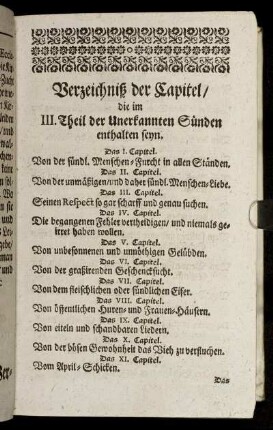 Verzeichniß der Capitel/
die im
III. Theil der Unerkannten Sünden
enthalten seyn.
Das I. Capitel.
Von der sündl. Menschen-Furcht in allen Ständen.
Das II. Capitel.
Von der unmäßigen/und daher sündl. Menschen-Liebe.
Das III. Capitel.
Seinen Respect so gar scharff und genau suchen.
Das IV. Capitel.
Die begangenen Fehler vertheidigen/ und niemals ge-
irret haben wollen.
Das V. Capitel.
Von unbesonnenen und unnöthigen Gelübden.
Das VI. Capitel.
Von der grassirenden Geschencksucht.
Das VII. Capitel.
Von dem fleischlichen oder sündlichen Eifer.
Das VIII. Capitel.
Von öffentlichen Huren- und Frauen-Häusern.
Das IX. Capitel.
Von eiteln und schandbaren Liedern.
Das X. Capitel.
Von der bösen Gewohnheit das Vieh zu verfluchen.
Das XI. Capitel.
Vom April-Schicken.
Das